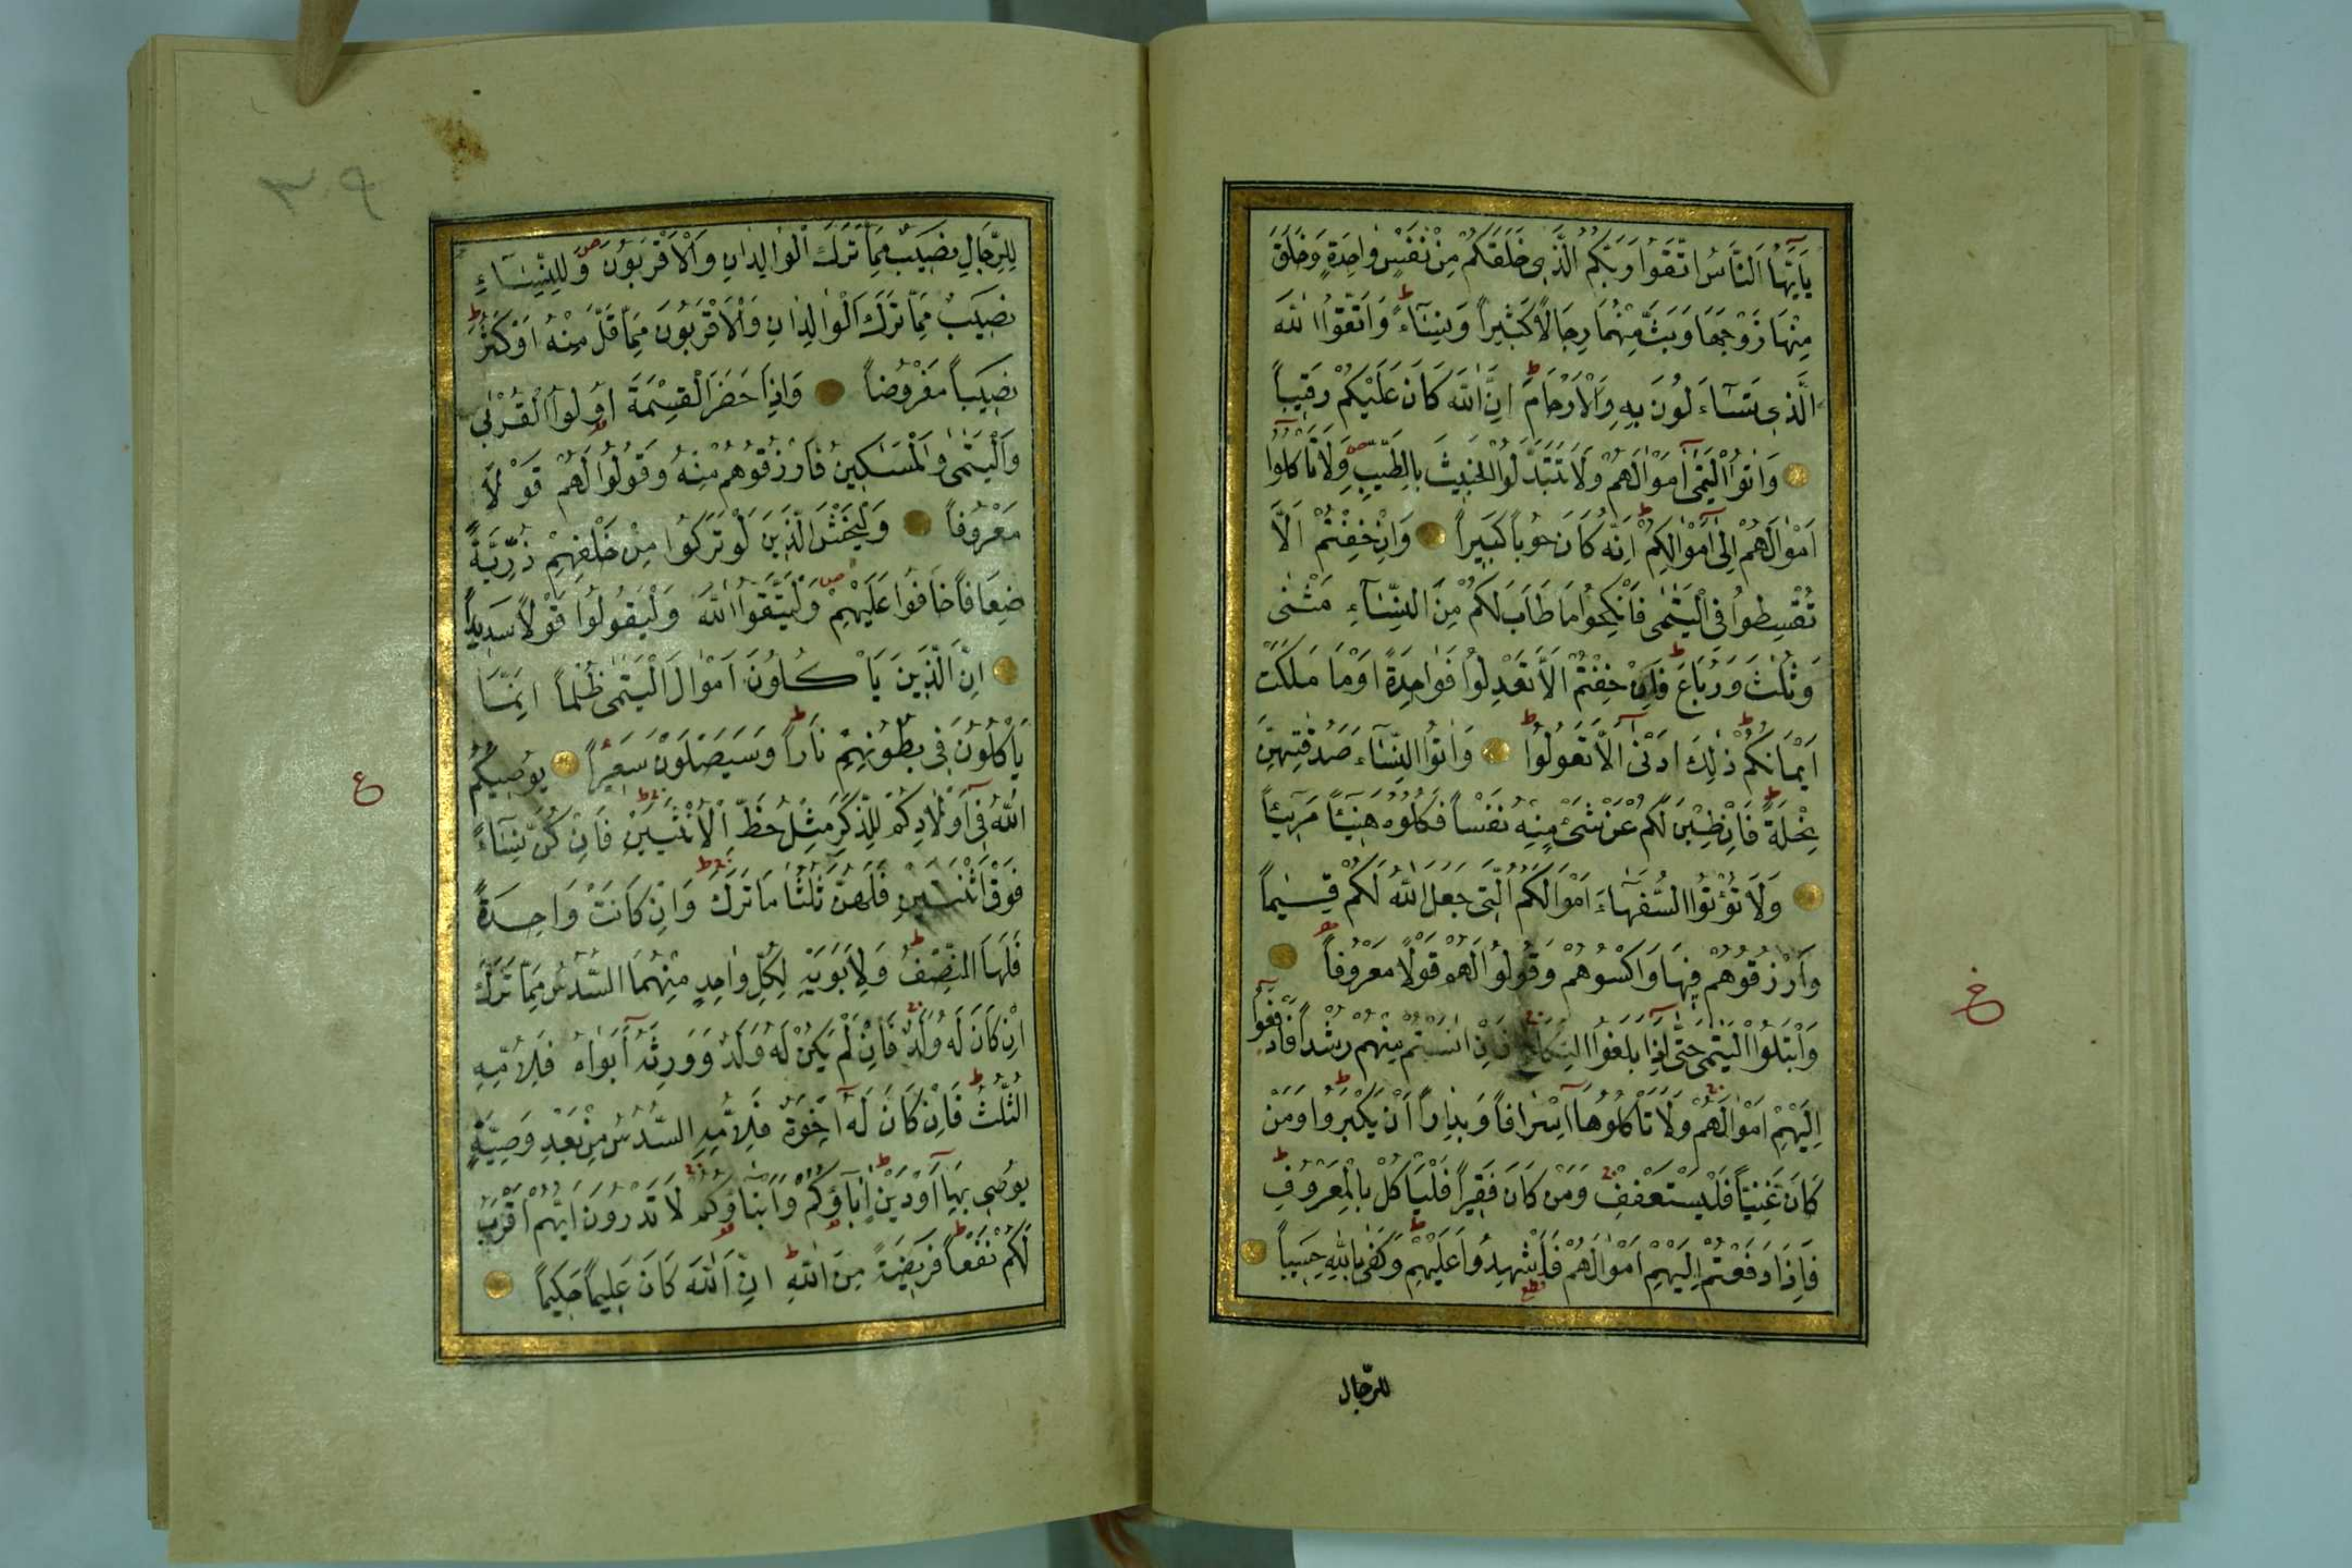 يَآاَيُّهَا النَّاسُ اتَّقُوا رَبَّكُمُ الَّذِى خَلَقَكُمْ مِنْ نَفْسٍ وٰاحِدَةٍ وَخَلَقَ
مِنْهَا زَوْجَهَا وَبَثَّ مِنْهُمَا رِجَالًا كَثِيرًا وَنِسَآءً ط وَاتَّقُوا اللّٰهَ
الَّذِى تَسَآءَلُونَ بِهِ وَالْاَرْحَامَ ط اِنَّ اللّٰهَ كَانَ عَلَيْكُمْ رَقِيبًا
وَاٰتُوا الْيَتٰمٰى اَمْوٰالَهُمْ وَلَا تَتَبَدَّلُوا الْخَبِيثَ بِالطَّيِّبِ ص وَلَا تَاْكُلُوا
اَمْوٰالَهُمْ اِلٰى اَمْوٰالِكُمْ ط اِنَّهُ كَانَ حُوبًا كَبِيرًا وَاِنْ خِفْتُمْ اَلَّا
تُقْسِطُوا فِى الْيَتٰمٰى فَانْكِحُوا مَا طَابَ لَكُمْ مِنَ النِّسَآءِ مَثْنٰى
وَثُلٰثَ وَرُبَاعَ ط فَاِنْ خِفْتُمْ اَلَّا تَعْدِلُوا فَوٰاحِدَةً اَوْ مَا مَلَكَتْ
اَيْمَانُكُمْ ط ذٰلِكَ اَدْنٰى اَلَّا تَعُولُوا ط وَاٰتُوا النِّسَآءَ صَدُقٰتِهِنَّ
نِحْلَةً ط فَاِنْ طِبْنَ لَكُمْ عَنْ شَىْءٍ مِنْهُ نَفْسًا فَكُلُوهُ هَنِيئًا مَرِيئًا
وَلَا تُؤْتُوا السُّفَهَآءَ اَمْوٰالَكُمُ الَّتِى جَعَلَ اللّٰهُ لَكُمْ قِيٰمًا
وَارْزُقُوهُمْ فِيهَا وَاكْسُوهُمْ وَقُولُوا لَهُمْ قَوْلًا مَعْرُوفًا
وَابْتَلُوا الْيَتٰمٰى حَتّٰى اِذَا بَلَغُوا النِّكَاحَ ج فَاِنْ اٰنَسْتُمْ مِنْهُمْ رُشْدًا فَادْفَعُوا
اِلَيْهِمْ اَمْوٰالَهُمْ ج وَلَا تَاْكُلُوهَا اِسْرَافًا وَبِدَارًا اَنْ يَكْبَرُوا ط وَمَنْ
كَانَ غَنِيًّا فَلْيَسْتَعْفِفْ ج وَمَنْ كَانَ فَقِيرًا فَلْيَاْكُلْ بِالْمَعْرُوفِ ط
فَاِذَا دَفَعْتُمْ اِلَيْهِمْ اَمْوٰالَهُمْ فَاَشْهِدُوا عَلَيْهِمْ ط وَكَفٰى بِاللّٰهِ حَسِيبًا
للرّجال
٣٩
لِلرِّجَالِ نَصِيبٌ مِمَّا تَرَكَ الْوٰالِدَانِ وَالْاَقْرَبُونَ ص وَلِلنِّسَآءِ
نَصِيبٌ مِمَّا تَرَكَ الْوٰالِدَانِ وَالْاَقْرَبُونَ مِمَّا قَلَّ مِنْهُ اَوْ كَثُرَ ط
نَصِيبًا مَفْرُوضًا وَاِذَا حَضَرَ الْقِسْمَةَ اُولُوا الْقُرْبٰى
وَالْيَتٰمٰى وَالْمَسٰكِينُ فَارْزُقُوهُمْ مِنْهُ وَقُولُوا لَهُمْ قَوْلًا
مَعْرُوفًا وَلْيَخْشَ الَّذِينَ لَوْ تَرَكُوا مِنْ خَلْفِهِمْ ذُرِّيَّةً
ضِعَافًا خَافُوا عَلَيْهِمْ ص وَلْيَتَّقُوا اللّٰهَ وَلْيَقُولُوا قَوْلًا سَدِيدًا
اِنَّ الَّذِينَ يَاْكُلُونَ اَمْوٰالَ الْيَتٰمٰى ظُلْمًا اِنَّمَا
يَاْكُلُونَ فِى بُطُونِهِمْ نَارًا ط وَسَيَصْلَوْنَ سَعِيرًا يُوصِيكُمُ
اللّٰهُ فِى اَوْلَادِكُمْ لِلذَّكَرِ مِثْلُ حَظِّ الْاُنْثَيَيْنِ ج فَاِنْ كُنَّ نِسَآءً
فَوْقَ اثْنَتَيْنِ فَلَهُنَّ ثُلُثَا مَا تَرَكَ ج وَاِنْ كَانَتْ وَاحِدَةً
فَلَهَا النِّصْفُ ط وَلِاَبَوَيْهِ لِكُلِّ وٰاحِدٍ مِنْهُمَا السُّدُسُ مِمَّا تَرَكَ
اِنْ كَانَ لَهُ وَلَدٌ ج فَاِنْ لَمْ يَكُنْ لَهُ وَلَدٌ وَوَرِثَهُ اَبَوٰاهُ فَلِاُمِّهِ
الثُّلُثُ ط فَاِنْ كَانَ لَهُ اِخْوَةٌ فَلِاُمِّهِ السُّدُسُ مِنْ بَعْدِ وَصِيَّةٍ
يُوصِى بِهَا اَوْ دَيْنٍ ط اٰبَاؤُكُمْ وَاَبْنَاؤُكُمْ ج لَا تَدْرُونَ اَيُّهُمْ اَقْرَبُ
لَكُمْ نَفْعًا ط فَرِيضَةً مِنَ اللّٰهِ ط اِنَّ اللّٰهَ كَانَ عَلِيمًا حَكِيمًا
ع